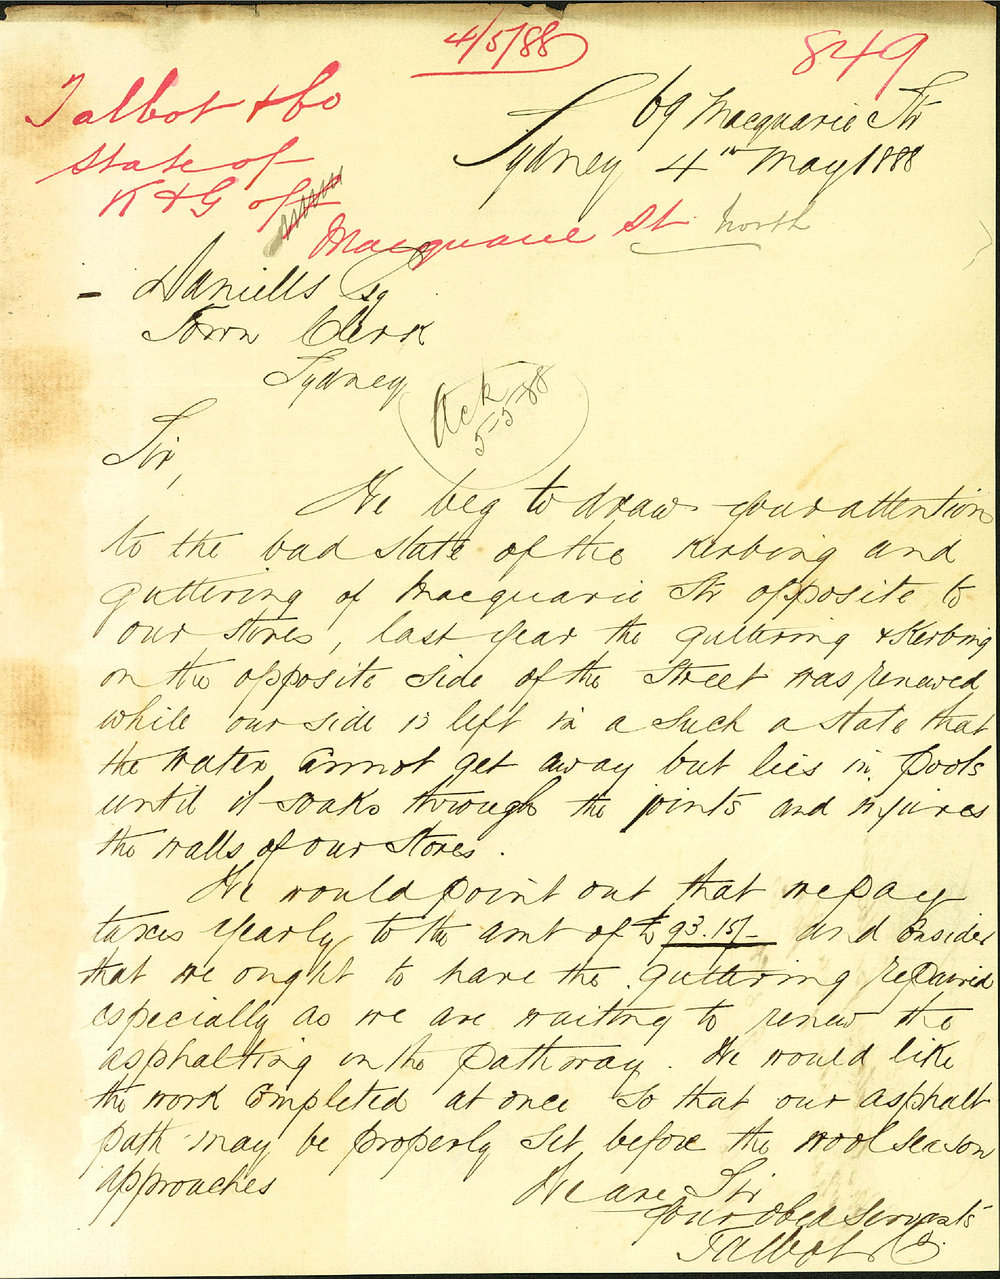 4/5/88
849
Talbot & Co
State of
K & G of
Macquarie St North
69 Macquarie Str
Sydney 4th May 1888
Daniells Esq
Town Clerk
Sydney
Ack
5-5-88
Sir,
We beg to draw your attention
to the bad state of the Kerbing and
guttering of Macquarie Str opposite to
our stores, last year the guttering & Kerbing
on the opposite side of the Street was renewed
while our side is left in a such a state that
the water cannot get away but lies in pools
until it soaks through the joints and injures
the walls of our stores.
We would point out that we pay
taxes yearly to the amt of £93.15/- and consider
that we ought to have the guttering repaired
especially as we are waiting to renew the
asphalting in the pathway. We would like
the work completed at once so that our asphalt
path may be properly set before the wool season
approaches
We are Sir
Your obed servants
Talbot & Co.